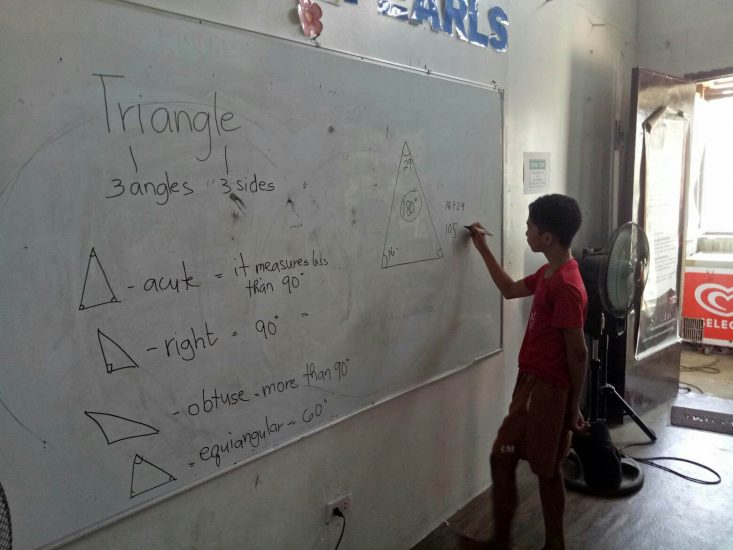 PEARLS
Triangle
3 angles 3 sides
- acute = it measures less
than 90°
- right = 90° =
- obtuse = more than 90°
= equiangular = 60°
29°
180°
76°
76+29
105
SELEC